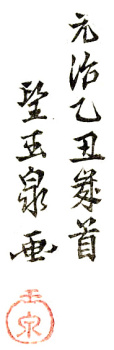 元治乙丑歳首
望玉泉画
玉泉